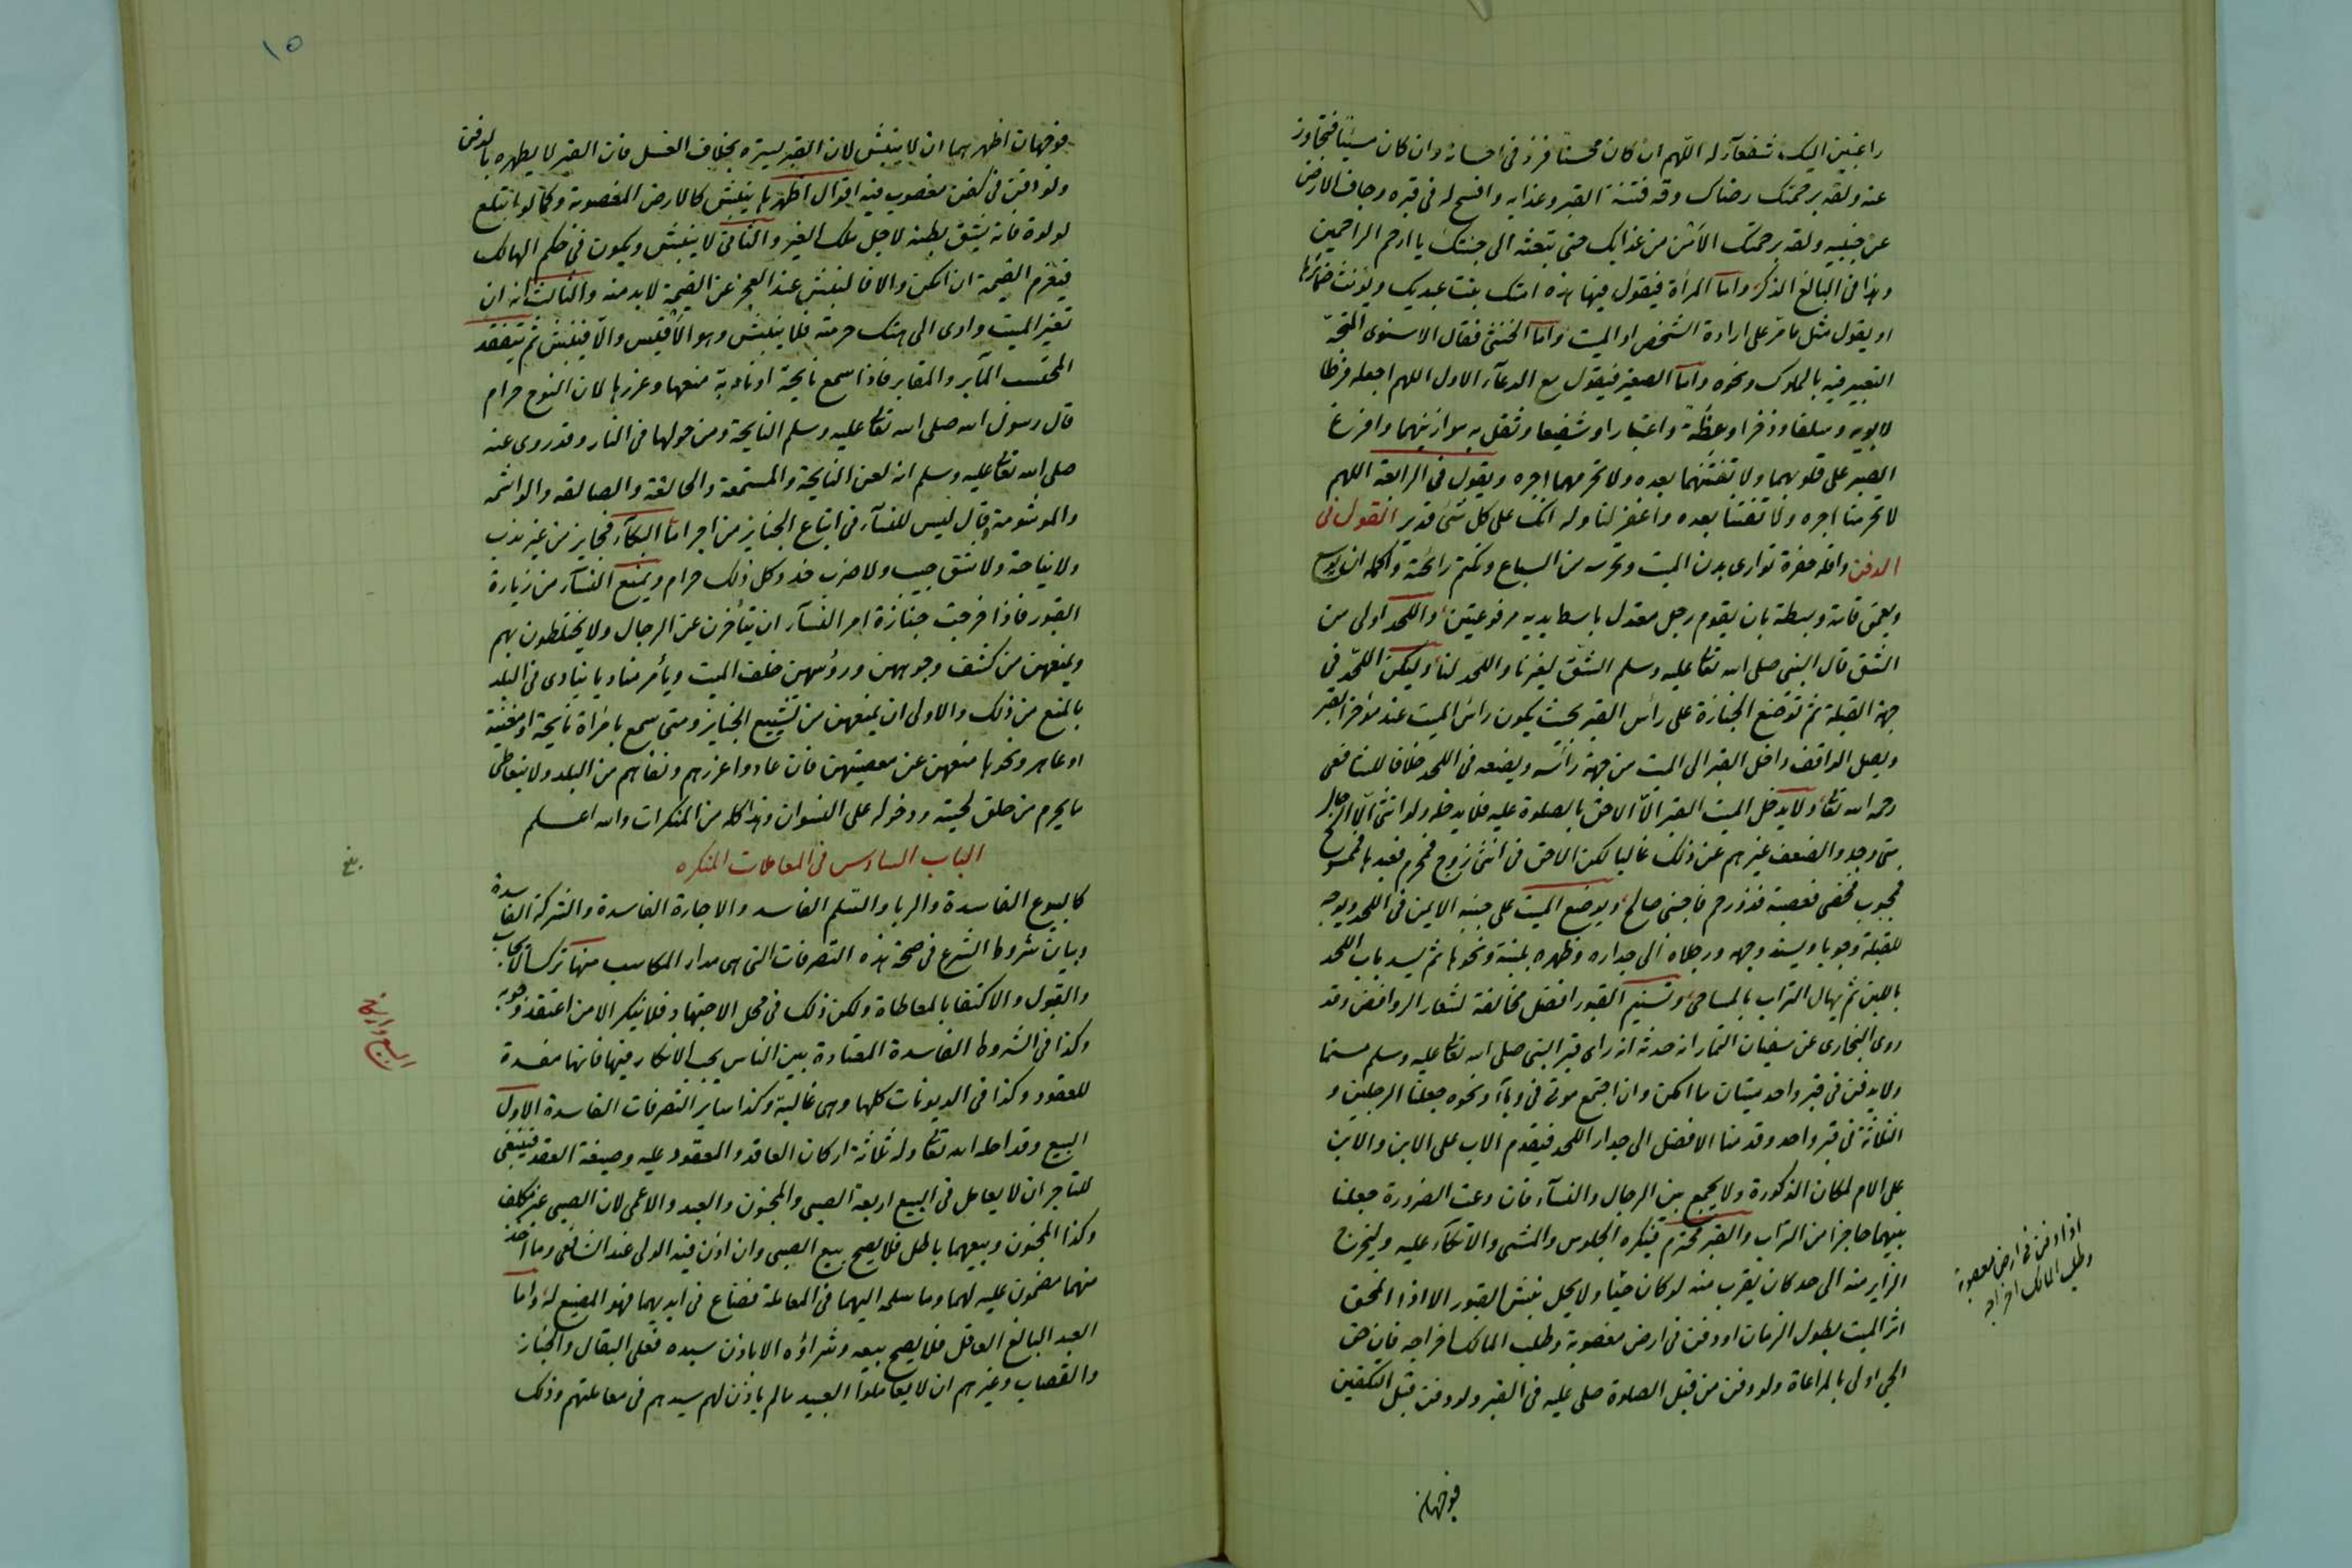 راغبين اليك شفعآء له اللهم ان كان محسنا فزد فى احسانه وان كان مسيئا فتجاوز
عنه ولقه برحمتك رضاك وقه فتنة القبر وعذابه وافسح له فى قبره وجاف الارض
عن جنبيه ولقه برحمتك الأمن من عذابك حتى تبعثه الى جنتك يا ارحم الراحمين
وهذا فى البالغ الذكر واما المرأة فيقول فيها هذه امتك بنت عبديك ويؤنث ضمائرها
او يقول مثل ما مر على ارادة الشخص او الميت واما الخنثى فقال الاسنوى المتجه
التعبير فيه بالمملوك ونحوه واما الصغير فيقول مع الدعآء الاول اللهم اجعله فرطا
لابويه وسلفا وذخرا وعظة واعتبارا وشفيعا وثقل به موازينهما وافرغ
الصبر على قلوبهما ولا تفتنهما بعده ولا تحرمهما اجره ويقول فى الرابعة اللهم
لا تحرمنا اجره ولا تفتنا بعده واغفر لنا وله انك على كل شئ قدير القول فى
الدفن واقله حفرة توارى بدن الميت وتحرسه من السباع وتكتم رائحته واكمله ان يوسع
ويعمق قامة وبسطة بان يقوم رجل معتدل باسطا يديه مرفوعتين واللحد اولى من
الشق قال النبى صلى الله تعالى عليه وسلم الشق لغيرنا واللحد لنا وليكن اللحد فى
جهة القبلة ثم توضع الجنازة على رأس القبر بحيث يكون رأس الميت عند مؤخر القبر
ويصل الواقف داخل القبر الى الميت من جهة رأسه ويضعه فى اللحد خلافا للشافعى
رحمه الله تعالى ولا يدخل الميت القبر الا الاحق بالصلوة عليه فلا يدخله ولو انثى الا الرجال
متى وجدوا لضعف غيرهم عن ذلك غالبا لكن الاحق فى انثى زوج فمحرم فعبدها فممسوح
فمجبوب فخصى فعصبة فذو رحم فاجنبى صالح ويوضع الميت على جنبه الايمن فى اللحد ويوجه
للقبلة وجوبا ويسند وجهه ورجلاه الى جداره وظهره بلبنة ونحوها ثم يسد باب اللحد
باللبن ثم يهال التراب بالمساحى وتسنيم القبور افضل مخالفة لشعار الروافض وقد
روى البخارى عن سفيان التمار انه حدثه انه راى قبر النبى صلى الله تعالى عليه وسلم مسنما
ولا يدفن فى قبر واحد ميتان ما امكن وان اجتمع موتى فى وبآء ونحوه جعلنا الرجلين و
الثلاثة فى قبر واحد وقدمنا الافضل الى جدار اللحد فيقدم الاب على الابن والابن
على الام لمكان الذكورة ولا يجمع بين الرجال والنسآء فان دعت الضرورة جعلنا
بينهما حاجزا من التراب والقبر محترم فيكره الجلوس والمشى والاتكآء عليه وليخرج
الزاير منه الى حد كان يقرب منه لو كان حيا ولا يحل نبش القبور الا اذا انمحق
اثر الميت بطول الزمان او دفن فى ارض مغصوبة وطلب المالك اخراجه فان حق
الحى اولى بالمراعاة ولو دفن من قبل الصلوة صلى عليه فى القبر ولو دفن قبل التكفين
فوجهان
اذا دفن فى ارض مغصوبة
وطلب المالك اخراجه
١٥
فوجهان اظهرهما ان لا ينبش لان القبر يستره بخلاف الغسل فان القبر لا يطهره بالدفن
ولو دفن فى كفن مغصوب فيه اقوال اظهرها ينبش كالارض المغصوبة وكما لو ابتلع
لولوة فانه يشق بطنه لاجل ملك الغير والثانى لا ينبش ويكون فى حكم الهالك
فيغرم القيمة ان امكن والا فالنبش عند العجز عن القيمة لا بد منه والثالث انه ان
تغير الميت وادى الى هتك حرمته فلا ينبش وهو الأقيس والا فينبش ثم يتفقد
المحتسب المآتم والمقابر فاذا سمع نايحة او نادبة منعها وعزرها لان النوح حرام
قال رسول الله صلى الله تعالى عليه وسلم النايحة ومن حولها فى النار وقد روى عنه
صلى الله تعالى عليه وسلم انه لعن النايحة والمستمعة والحالقة والصالقة والواشمة
والموشومة وقال ليس للنسآء فى اتباع الجنايز من اجر اما البكآء فجايز من غير ندب
ولا نياحة ولا شق جيب ولا ضرب خد وكل ذلك حرام ويمنع النسآء من زيارة
القبور فاذا خرجت جنازة امر النسآء ان يتأخرن عن الرجال ولا يختلطون بهم
ويمنعهن من كشف وجوههن ورؤسهن خلف الميت ويأمر مناديا ينادى فى البلد
بالمنع من ذلك والاولى ان يمنعهن من تشييع الجنايز ومتى سمع بامرأة نايحة او مغنية
او عاهر ونحوها منعهن عن معصيتهن فان عادوا عزرهم ونفاهم من البلد ولا يتعاطى
ما يحرم من حلق لحيته ودخوله على النسوان وهذا كله من المنكرات والله اعلم
الباب السادس فى المعاملات المنكره
كالبيوع الفاسدة والربا والسلم الفاسد والاجارة الفاسدة والشركة الفاسدة
وبيان شروط الشرع فى صحة هذه التصرفات التى هى مدار المكاسب منها ترك الايجاب
والقبول والاكتفا بالمعاطاة ولكن ذلك فى محل الاجتهاد فلا ينكر الا من اعتقد وجوبه
وكذا فى الشروط الفاسدة المعتادة بين الناس يجب الانكار فيها فانها مفسدة
للعقود وكذا فى الديونات كلها وهى غالبة وكذا ساير التصرفات الفاسدة الاول
البيع وقد احله الله تعالى وله ثلاثة اركان العاقد والمعقود عليه وصيغة العقد فينبغى
للتاجر ان لا يعامل فى البيع اربعة الصبى والمجنون والعبد والاعمى لان الصبى غير مكلف
وكذا المجنون وبيعهما باطل فلا يصح بيع الصبى وان اذن فيه الولى عند الشافعى وما اخذ
منهما مضمون عليه لهما وما سلمه اليهما فى المعاملة فضاع فى ايديهما فهو المضيع له واما
العبد البالغ العاقل فلا يصح بيعه وشراؤه الا باذن سيده فعلى البقال والخباز
والقصاب وغيرهم ان لا يعاملوا العبيد ما لم ياذن لهم سيدهم فى معاملتهم وذلك